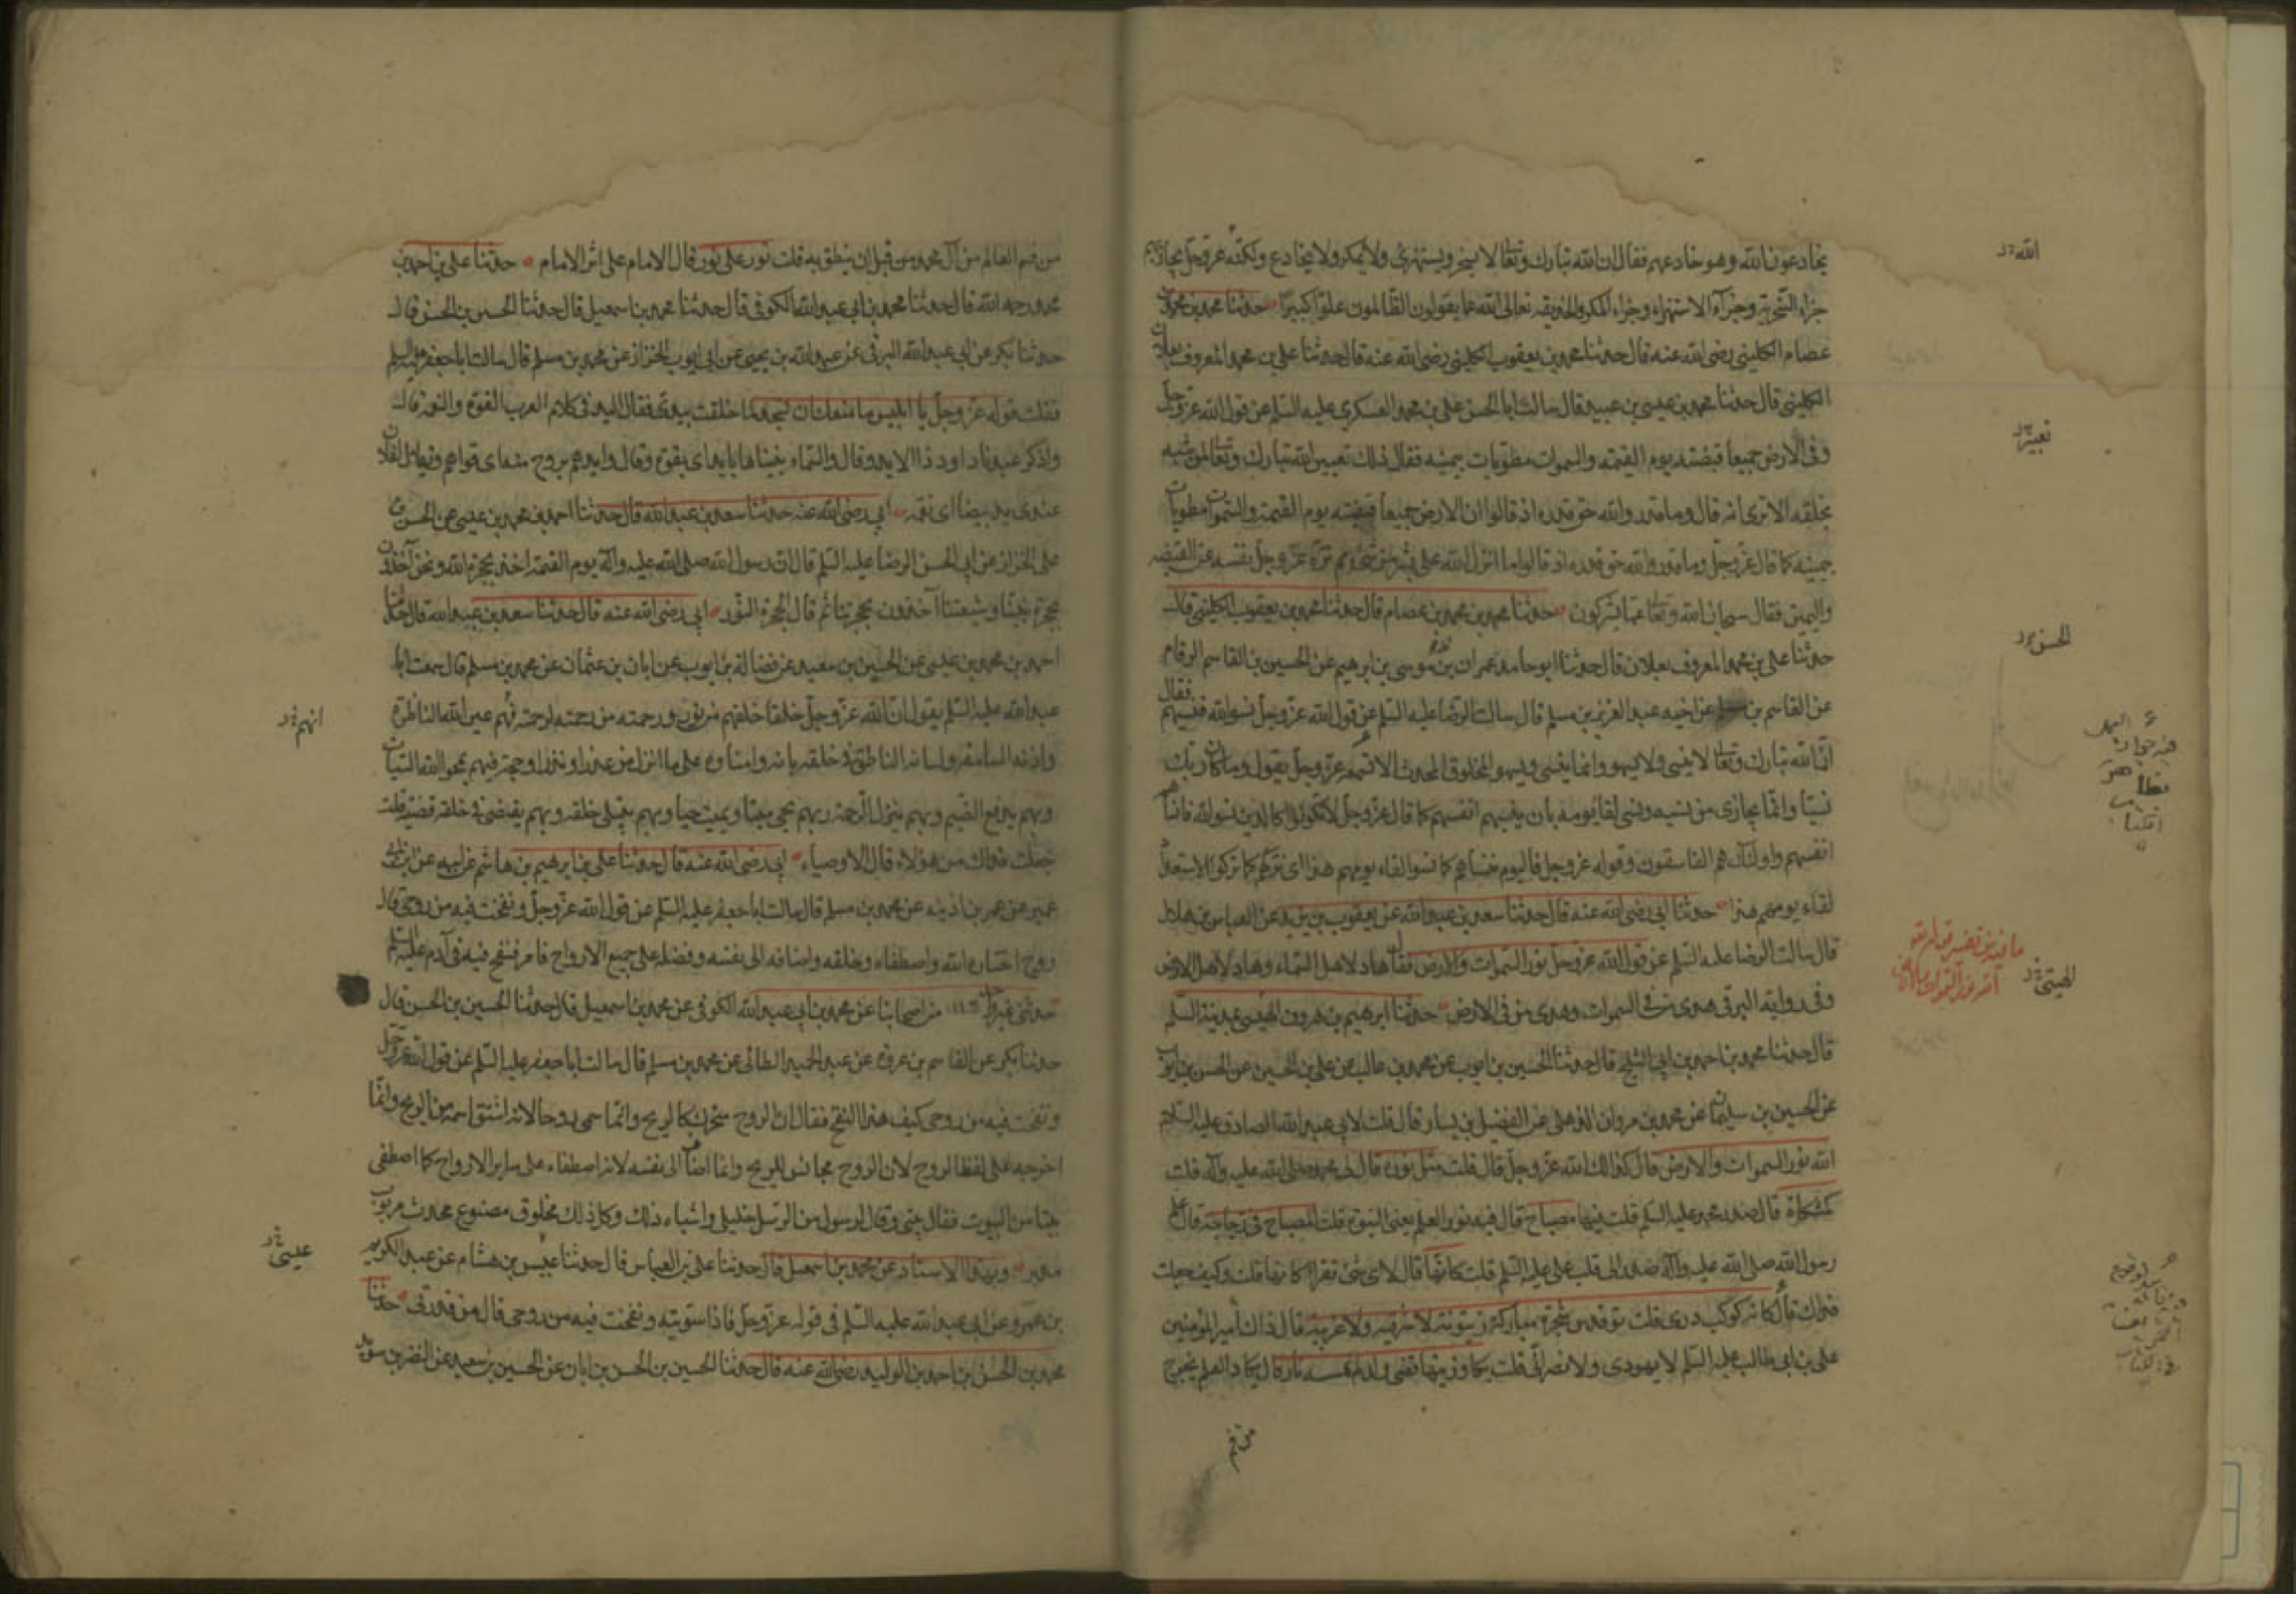 يخادعون الله وهو خادعهم فقال ان الله تبارك وتعالى لا يسخر ويستهزئ ولا يمكر ولا يخادع ولكنه عز وجل يجازيهم
جزاء السخرية وجزاء الاستهزاء وجزاء المكر والخديعة تعالى الله عما يقولون الظالمون علوا كبيرا حدثنا محمد بن محمد بن
عصام الكليني رضى الله عنه قال حدثنا محمد بن يعقوب الكليني رضى الله عنه قال حدثنا علي بن محمد المعروف بعلان
الكليني قال حدثنا محمد بن عيسى بن عبيد قال سالت ابا الحسن علي بن محمد العسكري عليه السلم عن قول الله عز وجل
وفي الارض جميعا قبضته يوم القيمة والسموات مطويات بيمينه فقال ذلك تعيير الله تبارك وتعالى لمن شبهه
بخلقه الا ترى انه قال وما قدروا الله حق قدره اذ قالوا ان الارض جميعا قبضته يوم القيمة والسموات مطويات
بيمينه كما قال عز وجل وما قدروا الله حق قدره اذ قالوا ما انزل الله على بشر من شيء ثم نزه عز وجل نفسه عن القبضه
واليمين فقال سبحان الله وتعالى عما يشركون حدثنا محمد بن محمد بن عصام قال حدثنا محمد بن يعقوب الكليني قال
حدثنا علي بن محمد المعروف بعلان قال حدثنا ابو حامد عمران بن موسى بن ابرهيم عن الحسين بن القاسم الرقام
عن القاسم بن مسلم عن اخيه عبد العزيز بن مسلم قال سالت الرضا عليه السلم عن قول الله عز وجل نسوا الله فنسيهم فقال
ان الله تبارك وتعالى لا ينسى ولا يسهو وانما ينسى ويسهو المخلوق المحدث الا تسمعه عز وجل يقول وما كان ربك
نسيا وانما يجازي من نسيه ونسى لقاء يومه بان ينسيهم انفسهم كما قال عز وجل لا تكونوا كالذين نسوا الله فانساهم
انفسهم واولئك هم الفاسقون وقوله عز وجل فاليوم ننساهم كما نسوا لقاء يومهم هذا اي نتركهم كما تركوا الاستعداد
لقاء يومهم هذا حدثنا ابي رضى الله عنه قال حدثنا سعد بن عبد الله عن يعقوب بن يزيد عن العباس بن هلال
قال سالت الرضا عليه السلم عن قول الله عز وجل نور السموات والارض فقال هاد لاهل السماء وهاد لاهل الارض
وفي رواية البرقي هدى من في السموات وهدى من في الارض حدثنا ابرهيم بن هرون الهيسي بمدينة السلم
قال حدثنا محمد بن احمد بن ابي الثلج قال حدثنا الحسين بن ايوب عن محمد بن غالب عن علي بن الحسين عن الحسن بن ايوب
عن الحسين بن سليمان عن محمد بن مروان الذهلي عن الفضيل بن يسار قال قلت لابي عبد الله الصادق عليه السلام
الله نور السموات والارض قال كذلك الله عز وجل قال قلت مثل نوره قال لي محمد صلى الله عليه وآله قلت
كمشكاة قال صدر محمد عليه السلم قلت فيها مصباح قال فيه نور العلم يعنى النبوة قلت المصباح في زجاجة قال علم
رسول الله صلى الله عليه وآله صدر الى قلب علي عليه السلم قلت كانها قال لاي شئ تقرأ كانها قلت وكيف جعلت
فداك قال كانه كوكب دري قلت توقد من شجرة مباركة زيتونة لا شرقية ولا غربية قال ذاك امير المؤمنين
علي بن ابي طالب عليه السلم لا يهودى ولا نصراني قلت يكاد زيتها يضئ ولو لم تمسسه نار قال يكاد العلم يخرج
من فم
الله
تعيير
الحسن
الهيتي
من فم العالم من آل محمد من قبل ان ينطق به قلت نور على نور قال الامام على اثر الامام حدثنا علي بن احمد بن
محمد رحمه الله قال حدثنا محمد بن ابي عبد الله الكوفي قال حدثنا محمد بن اسمعيل قال حدثنا الحسين بن الحسن قال
حدثنا بكر عن ابي عبد الله البرقي عن عبد الله بن يحيى عن ابي ايوب الخزاز عن محمد بن مسلم قال سالت ابا جعفر عليه السلم
فقلت قوله عز وجل يا ابليس ما منعك ان تسجد لما خلقت بيدي فقال اليد في كلام العرب القوة والنور قال
واذكر عبدنا داود ذا الايد وقال والسماء بنيناها بايد اي بقوة وقال وايدهم بروح منه اي قواهم ويقال لفلان
عندي يد بيضا اي نعمة ابي رضى الله عنه حدثنا سعد بن عبد الله قال حدثنا احمد بن محمد بن عيسى عن الحسن بن
علي الخزاز عن ابي الحسن الرضا عليه السلم قال ان رسول الله صلى الله عليه وآله يوم القيمة اخذ بحجزة الله ونحن آخذون
بحجزة نبينا وشيعتنا آخذون بحجزتنا ثم قال الحجزة النور ابي رضى الله عنه قال حدثنا سعد بن عبد الله قال حدثنا
احمد بن محمد بن عيسى عن الحسين بن سعيد عن فضالة بن ايوب عن ابان بن عثمان عن محمد بن مسلم قال سمعت ابا
عبد الله عليه السلم يقول ان الله عز وجل خلقا خلقهم من نوره ورحمته من رحمته لرحمته فهم عين الله الناظرة
واذنه السامعة ولسانه الناطق في خلقه باذنه وامناؤه على ما انزل من عذر او نذر او حجة فبهم يمحو الله السيئات
وبهم يدفع الضيم وبهم ينزل الرحمة وبهم يحي ميتا ويميت حيا وبهم يبتلى خلقه وبهم يقضى في خلقه قضيته قلت
جعلت فداك من هؤلاء قال الاوصياء ابي رضى الله عنه قال حدثنا علي بن ابرهيم بن هاشم عن ابيه عن ابن ابي
عمير عن عمر بن اذينة عن محمد بن مسلم قال سالت ابا جعفر عليه السلم عن قول الله عز وجل ونفخت فيه من روحي قال
روح اختاره الله واصطفاه وخلقه واضافه الى نفسه وفضله على جميع الارواح فامر فنفخ فيه في آدم عليه السلم
حدثني غير واحد من اصحابنا عن محمد بن ابي عبد الله الكوفي عن محمد بن اسمعيل قال حدثنا الحسين بن الحسن قال
حدثنا بكر عن القاسم بن عروة عن عبد الحميد الطائي عن محمد بن مسلم قال سالت ابا جعفر عليه السلم عن قول الله عز وجل
ونفخت فيه من روحي كيف هذا النفخ فقال ان الروح متحرك كالريح وانما سمى روحا لانه اشتق اسمه من الريح وانما
اخرجه على لفظ الروح لان الروح مجانس للريح وانما اضافه الى نفسه لانه اصطفاه على ساير الارواح كما اصطفى
بيتا من البيوت فقال بيتي وقال لرسول من الرسل خليلي واشباه ذلك وكل ذلك مخلوق مصنوع محدث مربوب
مدبر وبهذا الاسناد عن محمد بن اسمعيل قال حدثنا علي بن العباس قال حدثنا عبيس بن هشام عن عبد الكريم
بن عمرو عن ابي عبد الله عليه السلم في قوله عز وجل فاذا سويته ونفخت فيه من روحي قال من قدرتي حدثنا
محمد بن الحسن بن احمد بن الوليد رضى الله عنه قال حدثنا الحسين بن الحسن بن ابان عن الحسين بن سعيد عن النضر بن سويد
انهم
عيسى